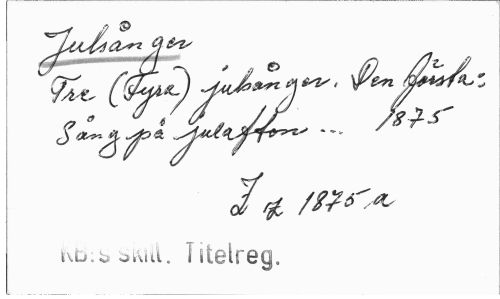 Julsånger
Tre (Fyra) julsånger. Den första:
Sång på julafton ... 1875
Z z 1875 a
KB:s skill. Titelreg.